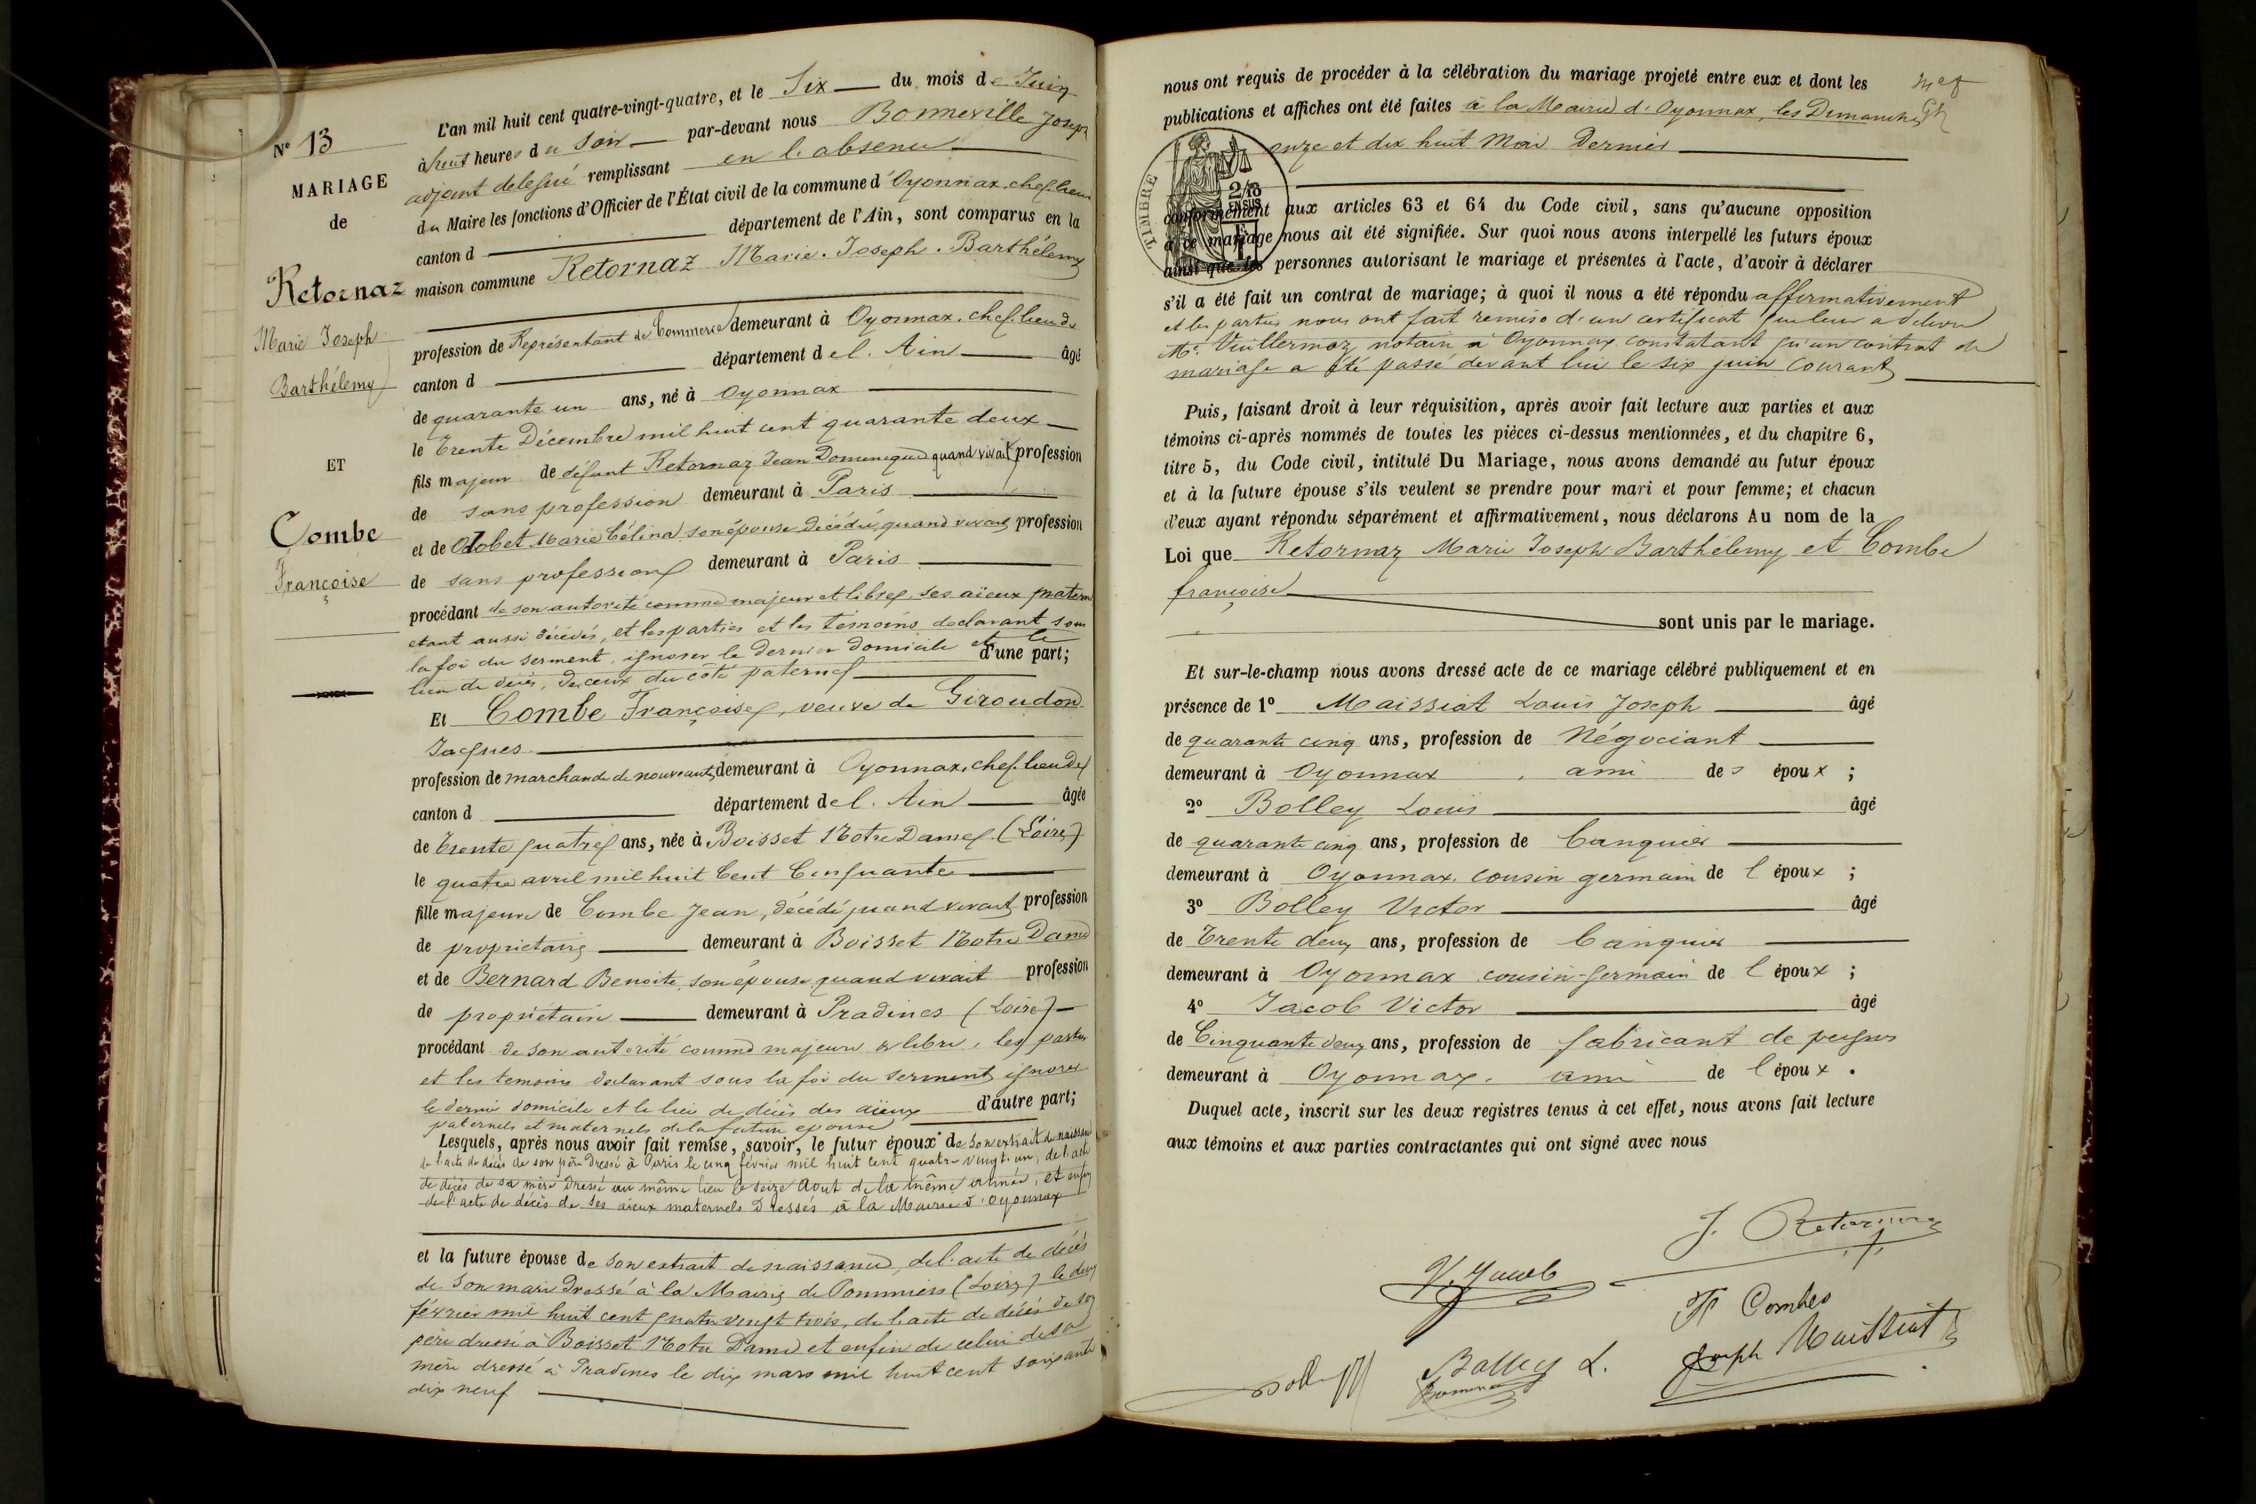 N° 13
MARIAGE
de
Retornaz
Marie Joseph
Barthélemy
ET
Combe
Françoise
L'an mil huit cent quatre-vingt-quatre, et le Six du mois de Juin
à huit heures du soir par-devant nous Bonneville Joseph
adjoint delegué remplissant en l'absence
du Maire les fonctions d'Officier de l'État civil de la commune d'Oyonnax, chef-lieu
canton d département de l'Ain, sont comparus en la
maison commune Retornaz Marie-Joseph-Barthélemy
profession de Représentant de Commerce demeurant à Oyonnax, chef lieu de
canton d département de l'Ain âgé
de quarante un ans, né à Oyonnax
le Trente Décembre mil huit cent quarante deux
fils majeur de défunt Retornaz Jean Domenique quand vivait profession
de sans profession demeurant à Paris
et de Odobet Marie Célina son épouse décédée, quand vivait profession
de sans profession demeurant à Paris
procédant de son autorité comme majeur et libre, ses aïeux matern
etant aussi décédés, et les parties et les témoins declarant sous
la foi du serment, ignorer le dernier domicile et le
lieu de décès, de ceux du côté paternel d'une part;
Et Combe Françoise, veuve de Giroudon
Jacques
profession de marchande de nouveautés demeurant à Oyonnax, chef lieu de
canton d département de l'Ain âgée
de Trente quatre ans, née à Boisset Notre Dame (Loire)
le quatre avril mil huit Cent Cinquante
fille majeure de Combe Jean, décédé quand vivait profession
de propriétaire demeurant à Boisset Notre Dame
et de Bernard Benoite, son épouse quand vivait profession
de propriétaire demeurant à Pradines (Loire)
procédant de son autorité comme majeure et libre, les parties
et les temoins declarant sous la foi du serment ignorer
le dernier domicile et le lieu de décès des aïeux d'autre part;
paternels et maternels de la future epouse
Lesquels, après nous avoir fait remise, savoir, le futur époux de son extrait de naissance
de l'acte de décès de son père dressé à Paris le cinq février mil huit cent quatre vingt-un, de l'acte
de décès de sa mère dressé au même lieu le seize Aout de la même année, et enfin
de l'acte de décès de ses aïeux maternels dressés à la Mairie d'Oyonnax
et la future épouse de son extrait de naissance, de l'acte de décès
de son mari dressé à la Mairie de Pommiers (Loire) le deux
février mil huit cent quatre vingt trois, de l'acte de décès de son
père dressé à Boisset Notre Dame et enfin de celui de sa
mère dressé à Pradines le dix mars mil huit cent soixante
dix neuf
nous ont requis de procéder à la célébration du mariage projeté entre eux et dont les
publications et affiches ont été faites à la Mairie d'Oyonnax, les Dimanches
onze et dix huit Mai Dernier
TIMBRE
conformément aux articles 63 et 64 du Code civil, sans qu'aucune opposition
à ce mariage nous ait été signifiée. Sur quoi nous avons interpellé les futurs époux
ainsi que les personnes autorisant le mariage et présentes à l'acte, d'avoir à déclarer
s'il a été fait un contrat de mariage; à quoi il nous a été répondu affirmativement
et les parties nous ont fait remise d'un certificat que leur a delivré
Me. Vuillermoz notaire à Oyonnax constatant qu'un contrat de
mariage a été passé devant lui le six juin courant
Puis, faisant droit à leur réquisition, après avoir fait lecture aux parties et aux
témoins ci-après nommés de toutes les pièces ci-dessus mentionnées, et du chapitre 6,
titre 5, du Code civil, intitulé Du Mariage, nous avons demandé au futur époux
et à la future épouse s'ils veulent se prendre pour mari et pour femme; et chacun
d'eux ayant répondu séparément et affirmativement, nous déclarons Au nom de la
Loi que Retornaz Marie Joseph Barthélemy et Combe
françoise
sont unis par le mariage.
Et sur-le-champ nous avons dressé acte de ce mariage célébré publiquement et en
présence de 1° Maissiat Louis Joseph âgé
de quarante cinq ans, profession de Négociant
demeurant à Oyonnax, ami des époux ;
2° Bolley Louis âgé
de quarante cinq ans, profession de banquier
demeurant à Oyonnax. cousin germain de l'époux ;
3° Bolley Victor âgé
de Trente deux ans, profession de banquier
demeurant à Oyonnax cousin-germain de l'époux ;
4° Jacob Victor âgé
de Cinquante deux ans, profession de fabricant de peignes
demeurant à Oyonnax. ami de l'époux .
Duquel acte, inscrit sur les deux registres tenus à cet effet, nous avons fait lecture
aux témoins et aux parties contractantes qui ont signé avec nous
J. Retornaz
V. Jacob
F Combe
Joseph Maissiat
Bolley L.